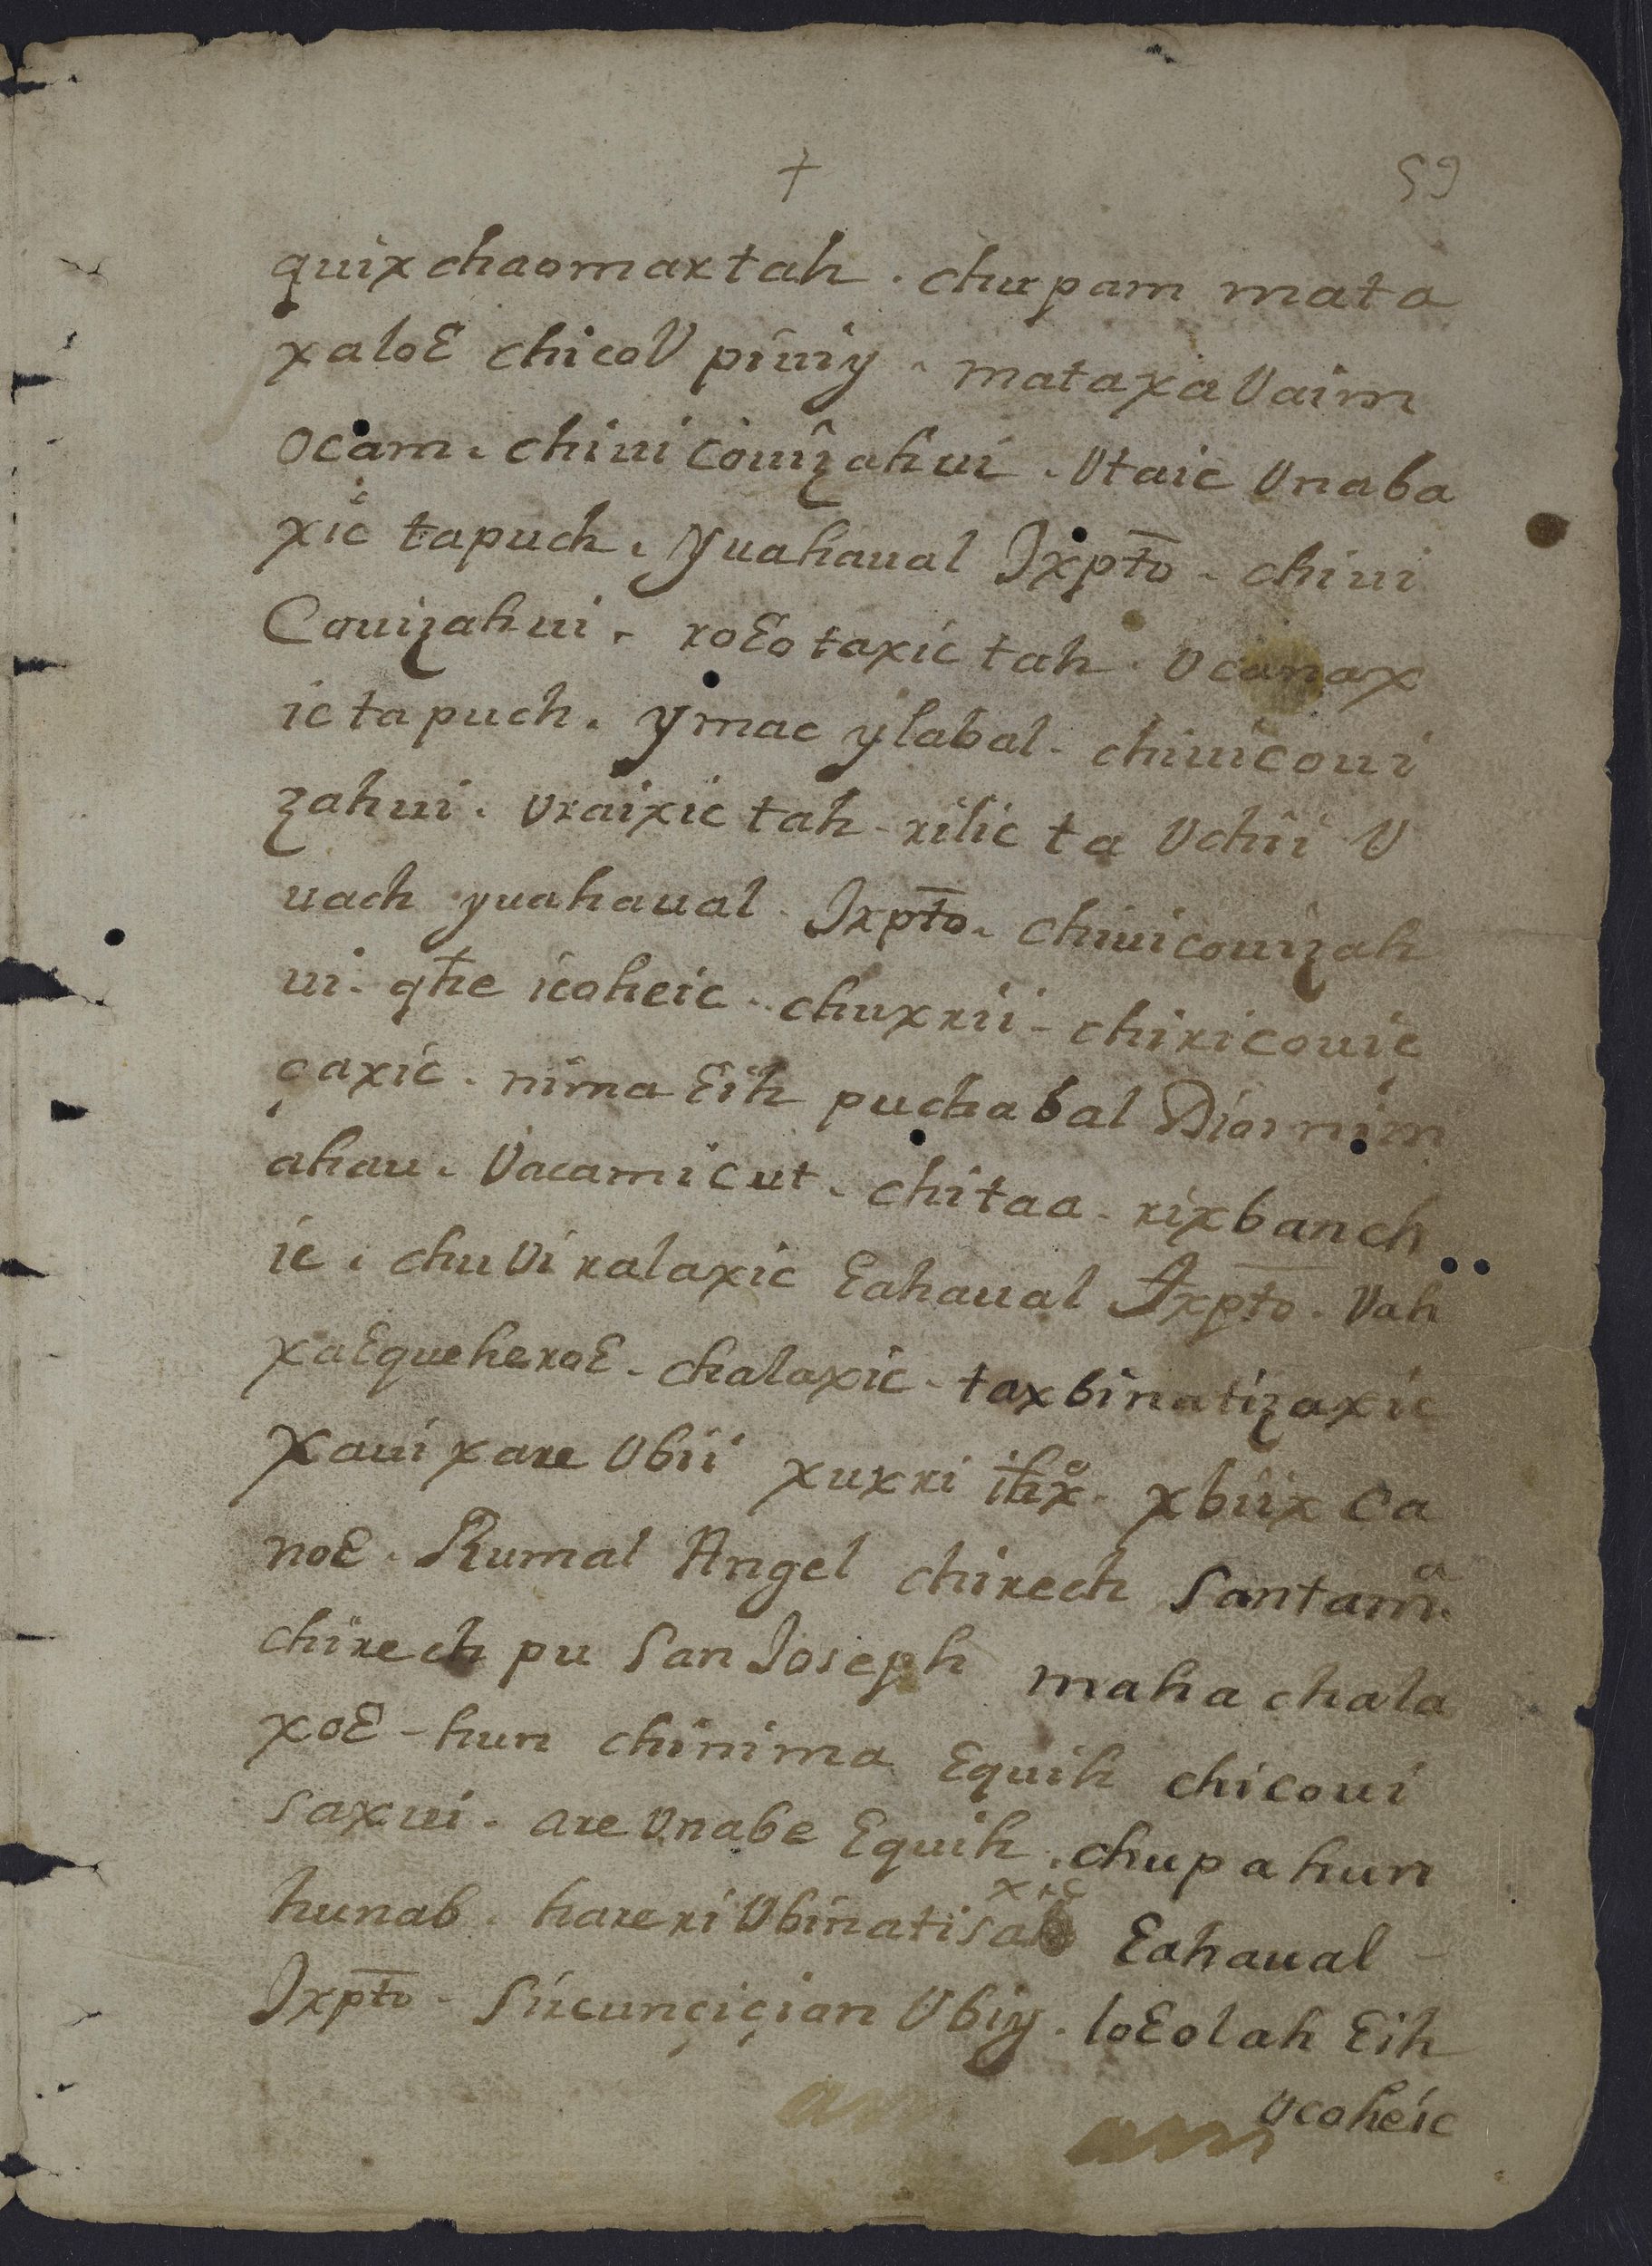 †
59
quixchaomaxtah . chupam mata
xaloƐ chicoV piuiy . mataxaVaim
ocam . chiui couizahui . Vtaic Vnaba
xic tapuch . Yuahaual Jxpt̄o . chiui
Couizahui . roƐotaxic tah . Vcanax
ic tapuch . ymac ylabal . chiuicoui
zahui . Vraixic tah - rilic ta Vchii V
uach yuahaual . Jxpt̄o . chiuicouizah
ui . qħe icoheic . chuxrii - chiricouic
çaxic . nima Ɛih puchabal Dios nim
ahau . Vacamicut . chitaa . rixbanch
ic . chuVi ralaxic Ɛahaual Jxpt̄o . Vah
xaƐqueheroƐ . chalaxic - taxbinatizaxic
xaui xare Vbii xuxri iħxº . xbiix ca
noƐ . Rumal Angel chirech Santa mª.
chirech pu San Joseph maha chala
xoƐ - hun chinima Ɛquih chicoui
saxui . are Vnabe Ɛquih . chupa hun
hunab . hare ri Vbinatisaxic Ɛahaual -
Jxpt̄o - Sircunçiçian Vbiy . loƐolah Ɛih
Vcoheic